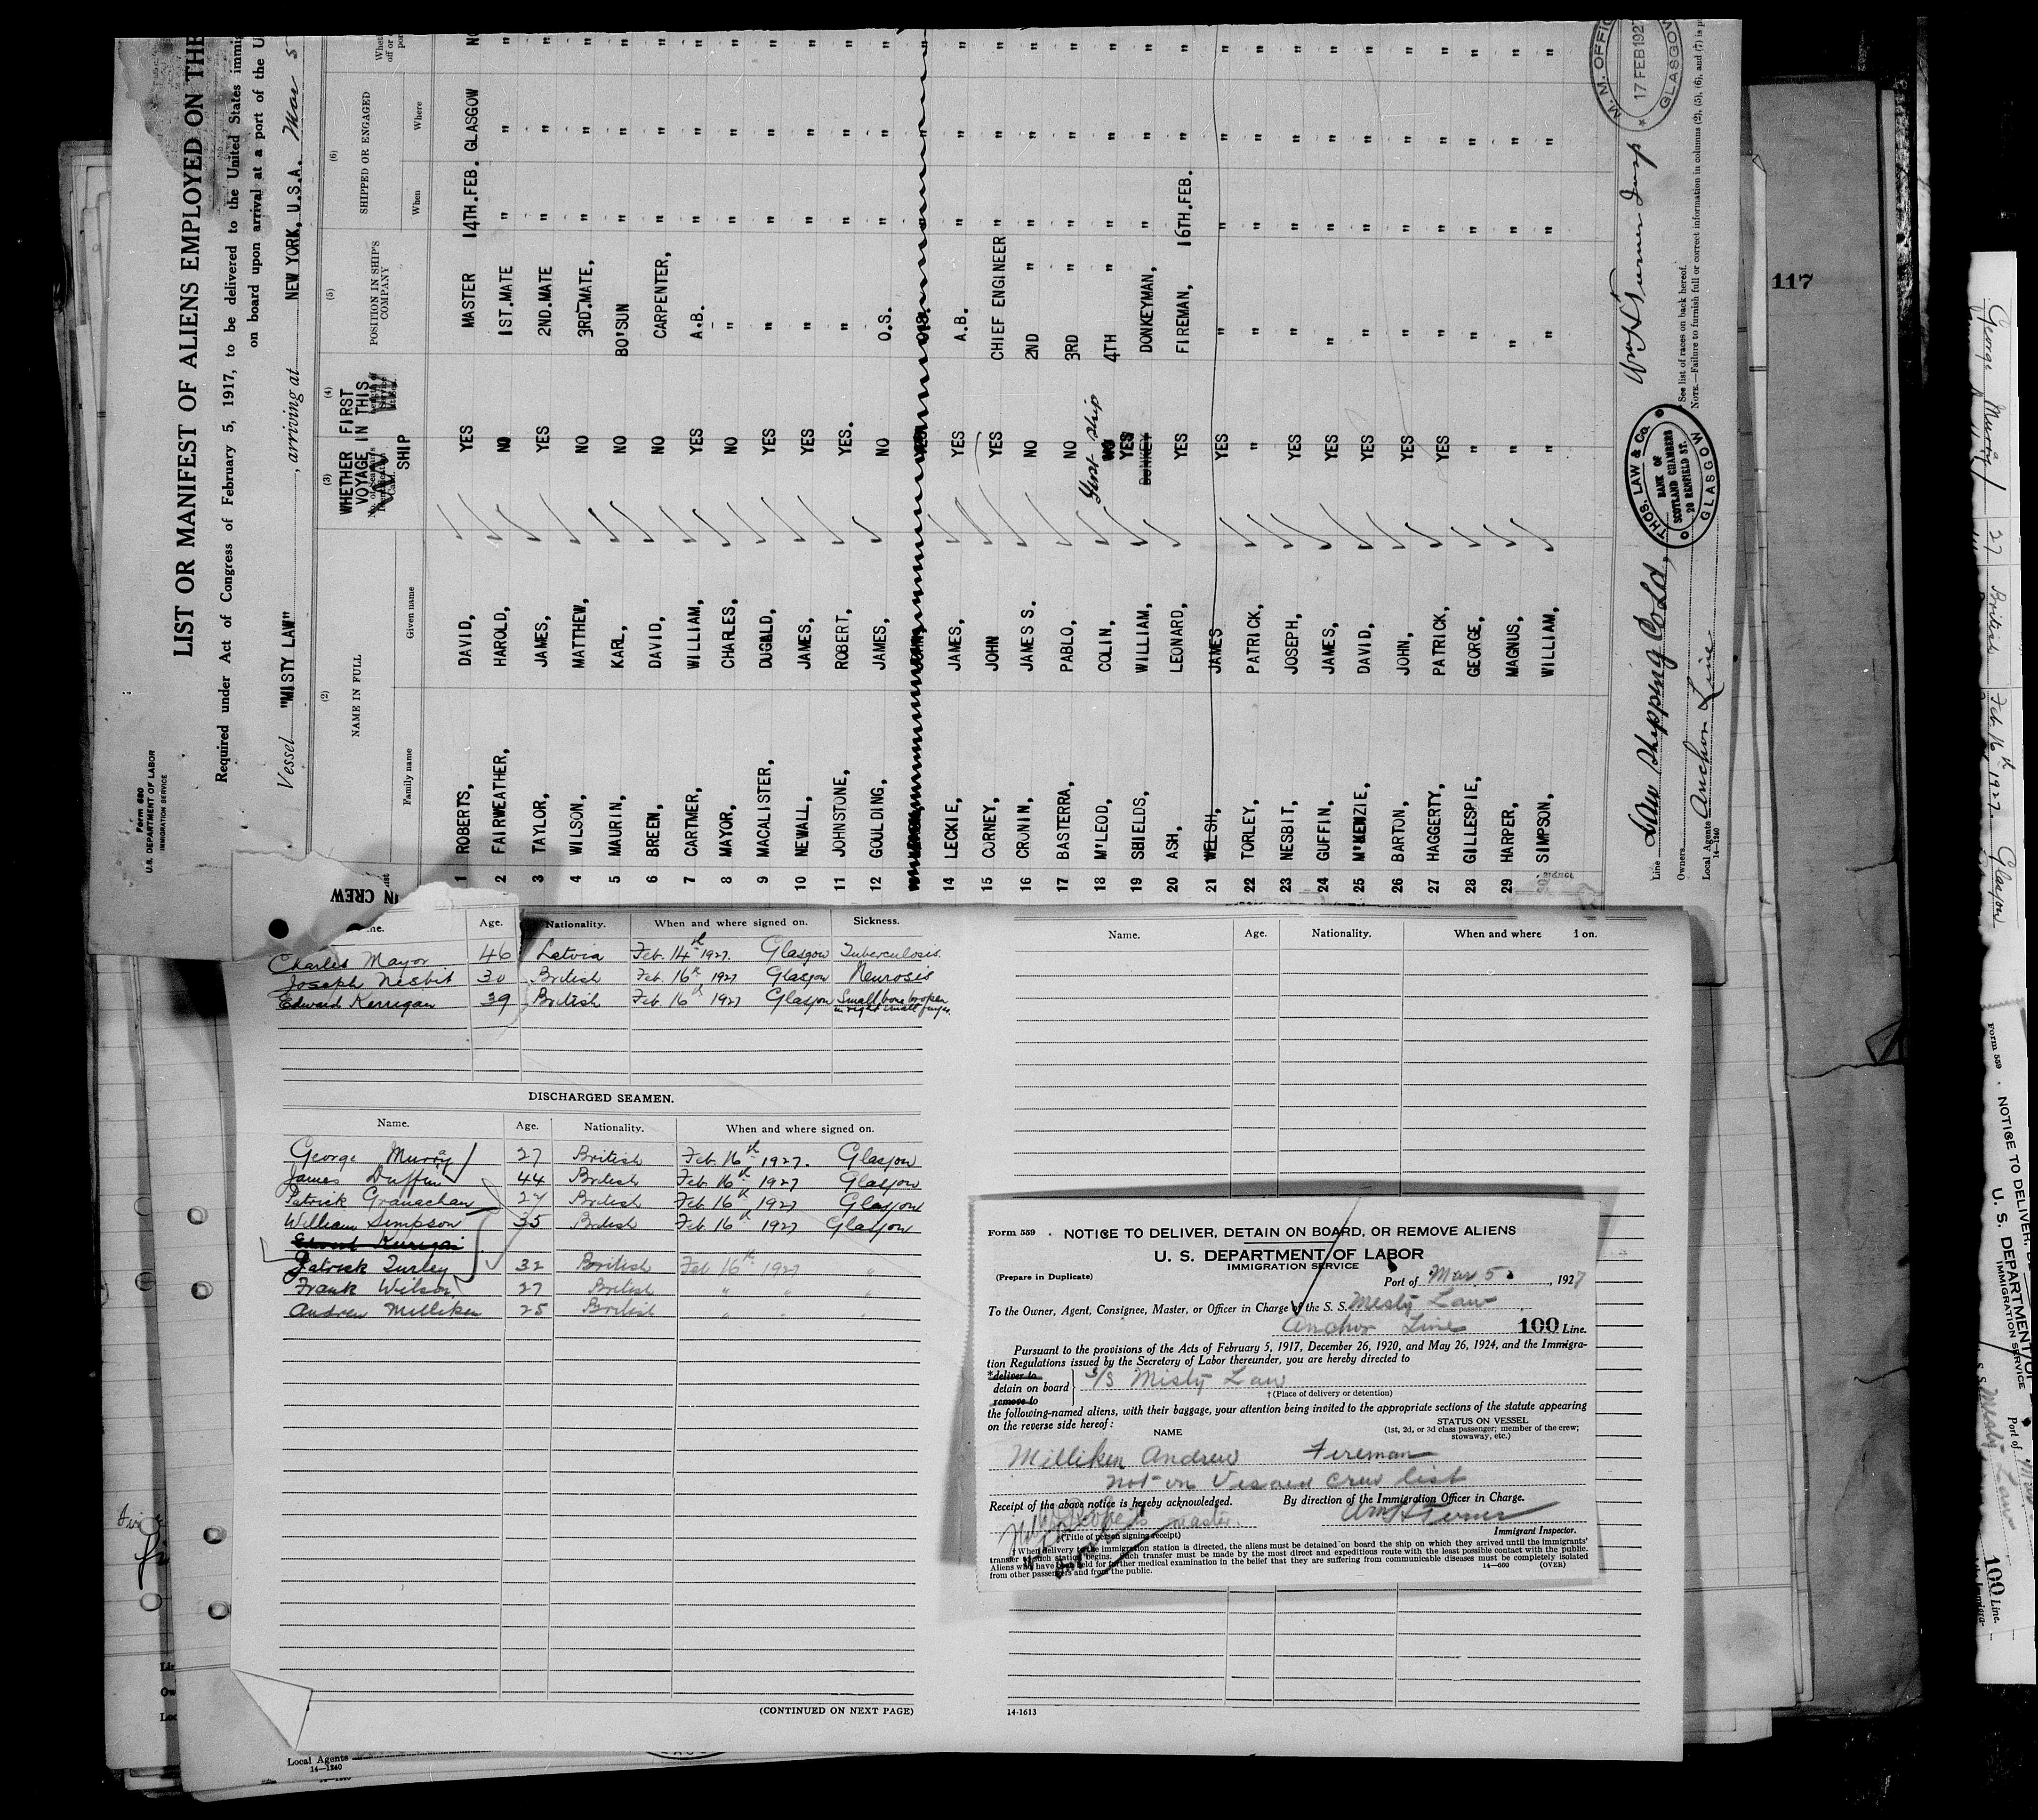 Form 680
U.S. DEPARTMENT OF LABOR
IMMIGRATION SERVICE
LIST OR MANIFEST OF ALIENS EMPLOYED ON THE
Required under Act of Congress of February 5, 1917, to be delivered to the United States immig
on board upon arrival at a port of the U
Vessel "MISTY LAW", arriving at NEW YORK, U.S.A. Mar 5
(2) (3) (4) (5) (6)
NAME IN FULL
WHETHER FIRST VOYAGE IN THIS SHIP
POSITION IN SHIP'S COMPANY
SHIPPED OR ENGAGED
Family name Given name When Where
1 ROBERTS, DAVID, YES MASTER 14TH.FEB. GLASGOW NO
2 FAIRWEATHER, HAROLD, NO 1ST.MATE " " "
3 TAYLOR, JAMES, YES 2ND.MATE " " "
4 WILSON, MATTHEW, NO 3RD.MATE, " " "
5 MAURIN, KARL, NO BO'SUN " " "
6 BREEN, DAVID, NO CARPENTER, " " "
7 CARTMER, WILLIAM, YES A.B. " " "
8 MAYOR, CHARLES, NO " " " "
9 MACALISTER, DUGALD, YES " " " "
10 NEWALL, JAMES, YES " " " "
11 JOHNSTONE, ROBERT, YES. " " " "
12 GOULDING, JAMES, NO O.S. " " "
14 LECKIE, JAMES, YES A.B. " " "
15 CORNEY, JOHN YES CHIEF ENGINEER " " "
16 CRONIN, JAMES S. NO 2ND " " " "
17 BASTERRA, PABLO, NO 3RD " " " "
18 M'LEOD, COLIN, first ship NO 4TH " " " "
19 SBIELDS, WILLIAM, DONKEY YES DONKEYMAN, " " "
20 ASH, LEONARD, YES FIREMAN, 16TH.FEB. " "
21 WELSH, JAMES YES " " " "
22 TORLEY, PATRICK, " " " " "
23 NESBIT, JOSEPH, YES " " " "
24 GUFFIN, JAMES, YES " " " "
25 M'KENZIE, DAVID, YES " " " "
26 BARTON, JOHN, YES " " " "
27 HAGGERTY, PATRICK, YES " " " "
28 GILLESPIE, GEORGE, " " " " "
29 HARPER, MAGNUS, " " " " "
30 SIMPSON, WILLIAM, " " " " "
Line Law Shipping Co Ld,
Owners
Local Agents Anchor Line
14—1240
THOS. LAW & Co.
BANK OF
SCOTLAND CHAMBERS
29 RENFIELD ST.
GLASGOW
* See list of races on back hereof.
NOTE.—Failure to furnish full or correct information in columns (2), (5), (6), and (7) is p
M. M. OFFIC
17 FEB 1927
GLASGOW
117
IN CREW
Age. Nationality. When and where signed on. Sickness.
Charles Mayor 46 Latvia Feb. 14th 1927. Glasgow Tuberculosis.
Joseph Nesbit 30 British Feb. 16th 1927 Glasgow Neurosis
Edward Kerrigan 39 British Feb. 16th 1927 Glasgow Small bone broken
in right small finger.
DISCHARGED SEAMEN.
Name. Age. Nationality. When and where signed on.
George Murray 27 British Feb. 16th 1927. Glasgow
James Duffin 44 British Feb. 16th 1927 Glasgow
Patrick Granachan 27 British Feb 16th 1927 Glasgow
William Simpson 35 British Feb 16th 1927 Glasgow
Edward Kerrigan
Patrick Turley 32 British Feb 16th 1927 "
Frank Wilson 27 British " " "
Andrew Milliken 25 British " " "
(CONTINUED ON NEXT PAGE)
Local Agents
14—1240
Name. Age. Nationality. When and where on.
14-1613
Form 559 NOTICE TO DELIVER, DETAIN ON BOARD, OR REMOVE ALIENS
U. S. DEPARTMENT OF LABOR
IMMIGRATION SERVICE
(Prepare in Duplicate)
Port of Mar. 5, 1927
To the Owner, Agent, Consignee, Master, or Officer in Charge of the S. S. Misty Law
Anchor Line 100 Line.
Pursuant to the provisions of the Acts of February 5, 1917, December 26, 1920, and May 26, 1924, and the Immigra-
tion Regulations issued by the Secretary of Labor thereunder, you are hereby directed to
*deliver to
detain on board S/S Misty Law
remove to
†(Place of delivery or detention)
the following-named aliens, with their baggage, your attention being invited to the appropriate sections of the statute appearing
on the reverse side hereof:
NAME
STATUS ON VESSEL
(1st, 2d, or 3d class passenger; member of the crew;
stowaway, etc.)
Milliken Andrew Fireman
not on Visaed crew list
Receipt of the above notice is hereby acknowledged. By direction of the Immigration Officer in Charge.
master.
(Title of person signing receipt)
Immigrant Inspector.
† When delivery to the immigration station is directed, the aliens must be detained on board the ship on which they arrived until the immigrants'
transfer to such station begins. Such transfer must be made by the most direct and expeditious route with the least possible contact with the public.
Aliens who have been held for further medical examination in the belief that they are suffering from communicable diseases must be completely isolated
from other passengers and from the public.
14—600 (OVER)
George Murray 27 British Feb. 16th 1927. Glasgow
Form 559 NOTICE TO DELIVER, DE
U. S. DEPARTMENT OF
IMMIGRATION SERVICE
Port of
Misty Law
100 Line.